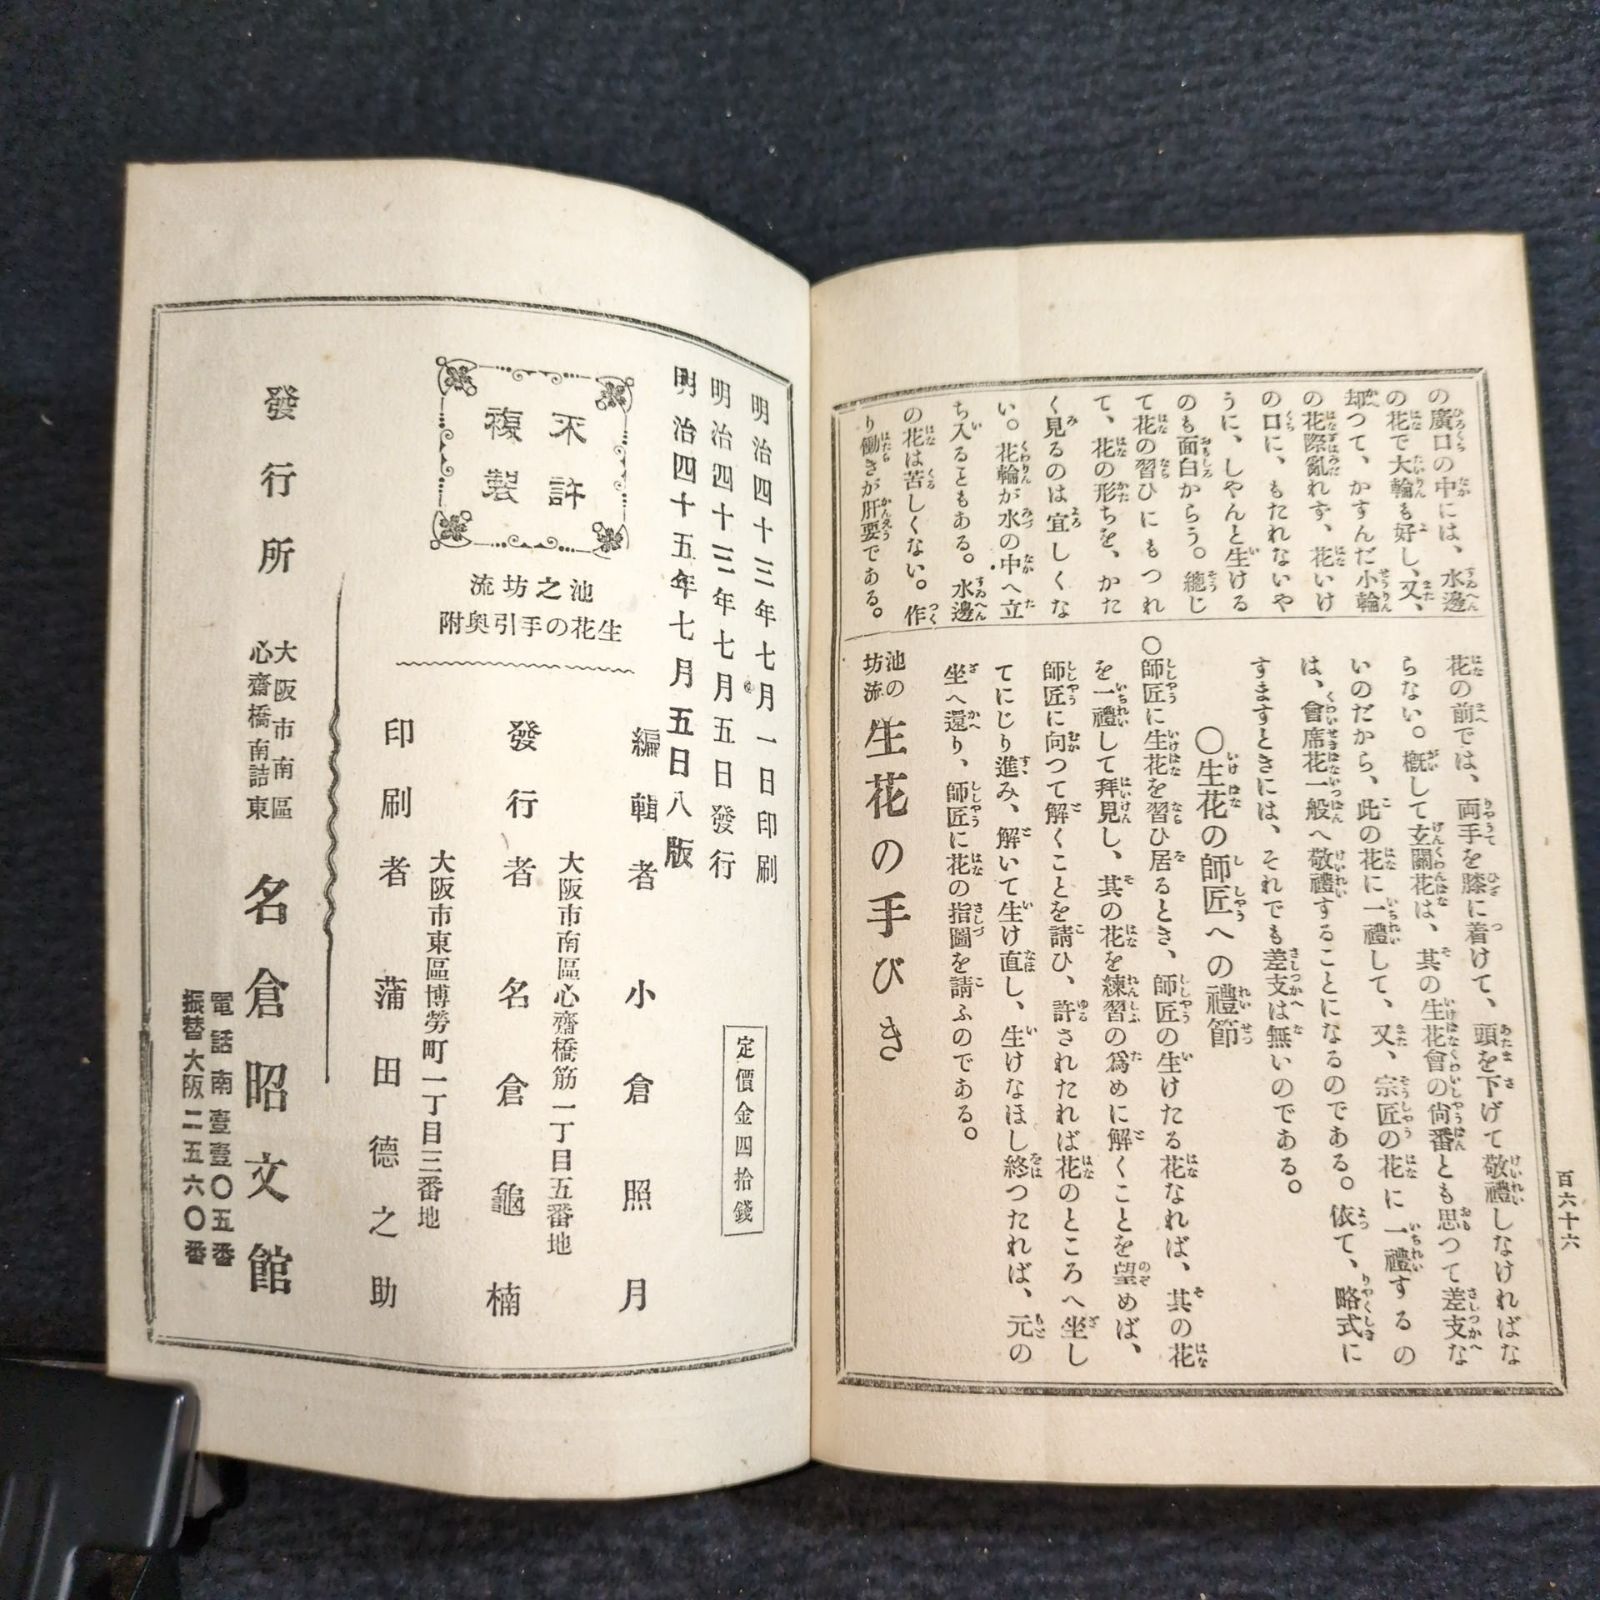 百六十六
の廣口の中には、水邊
の花で大輪も好し、又、
却つて、かすんだ小輪
の花際亂れず、花いけ
の口に、もたれないや
うに、しやんと生ける
のも面白からう。總じ
て花の習ひにもつれ
て、花の形ちを、かた
く見るのは宜しくな
い。花輪が水の中へ立
ち入るともある。水邊
の花は苦しくない。作
り働きが肝要である。
花の前では、両手を膝に着けて、頭を下げて敬禮しなければな
らない。概して玄關花は、其の生花會の尙番とも思つて差支な
いのだから、此の花に一禮して、又、宗匠の花に一禮するの
は、會席花一般へ敬禮することになるのである。依て、略式に
すますときには、それでも差支は無いのである。
〇生花の師匠への禮節
〇師匠に生花を習ひ居るとき、師匠の生けたる花なれば、其の花
を一禮して拜見し、其の花を練習の爲めに解くことを望めば、
師匠に向つて解くことを請ひ、許されたれば花のところへ坐し
てにじり進み、解いて生け直し、生けなほし終つたれば、元の
坐へ還り、師匠に花の指圖を請ふのである。
池の坊流 生花の手びき
明治四十三年七月一日印刷
明治四十三年七月五日發行
明治四十五年七月五日八版
定價金四拾錢
不許
複製
池之坊流
生花の手引奥附
編輯者 小倉照月
大阪市南區心齋橋筋一丁目五番地
發行者 名倉龜楠
大阪市東區博勞町一丁目三番地
印刷者 蒲田德之助
發行所
大阪市南區
心齋橋南詰東
名倉昭文館
電話南壹壹〇五番
振替大阪二五六〇番